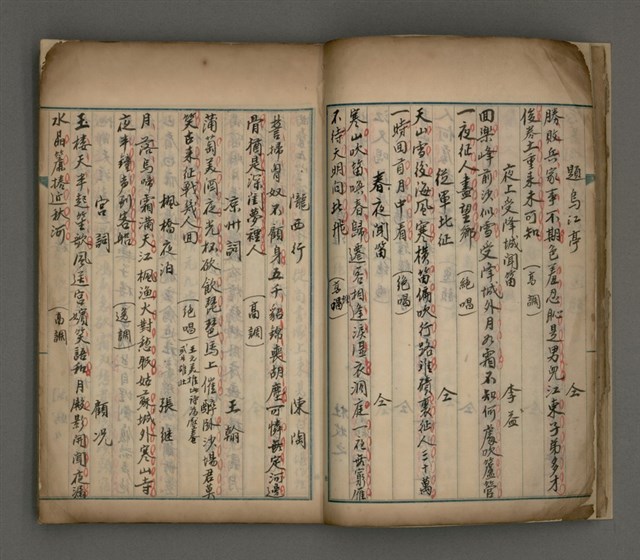 題烏江亭 仝
勝敗兵家事不期色羞忍恥是男兒江東子弟多才
俊卷土重来未可知 (高調)
夜上受降城聞笛 李益
回樂峰前沙似雪受降城外月如霜不知何處吹蘆管
一夜征人盡望鄉 (絶唱)
從軍北征 仝
天山雪後海風寒橫笛偏吹行路难磧裏征人三十萬
一時回首月中看 (絶唱)
春夜聞笛 仝
寒山吹笛喚春歸遷客相逢淚湿衣洞庭一夜無窮雁
不待天明向北飛
隴西行 陳陶
誓掃匈奴不顧身五千貂錦喪胡塵可憐無定河邊
骨猶是深閨夢裡人 (高調)
凉州詞 王翰
蒲萄美酒夜光杯欲飲琵琶馬上催醉臥沙場君莫
笑古来征戰幾人回 (絶唱)
楓橋夜泊 張継
月落烏啼霜滿天江楓漁火對愁眠姑蘇城外寒山寺
夜半鐘声到客船 (逸調)
宮詞 顧况
玉樓天半起笙歌風送宮嬪笑語和月殿影開聞夜漏
水晶簾捲近秋河 (高調)